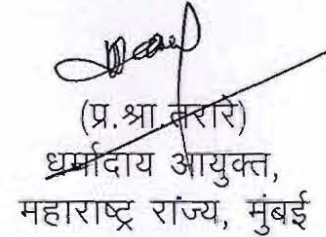 (प्र.श्रा.तरारे)
धर्मादाय आयुक्त,
महाराष्ट्र रांज्य, मुंबई